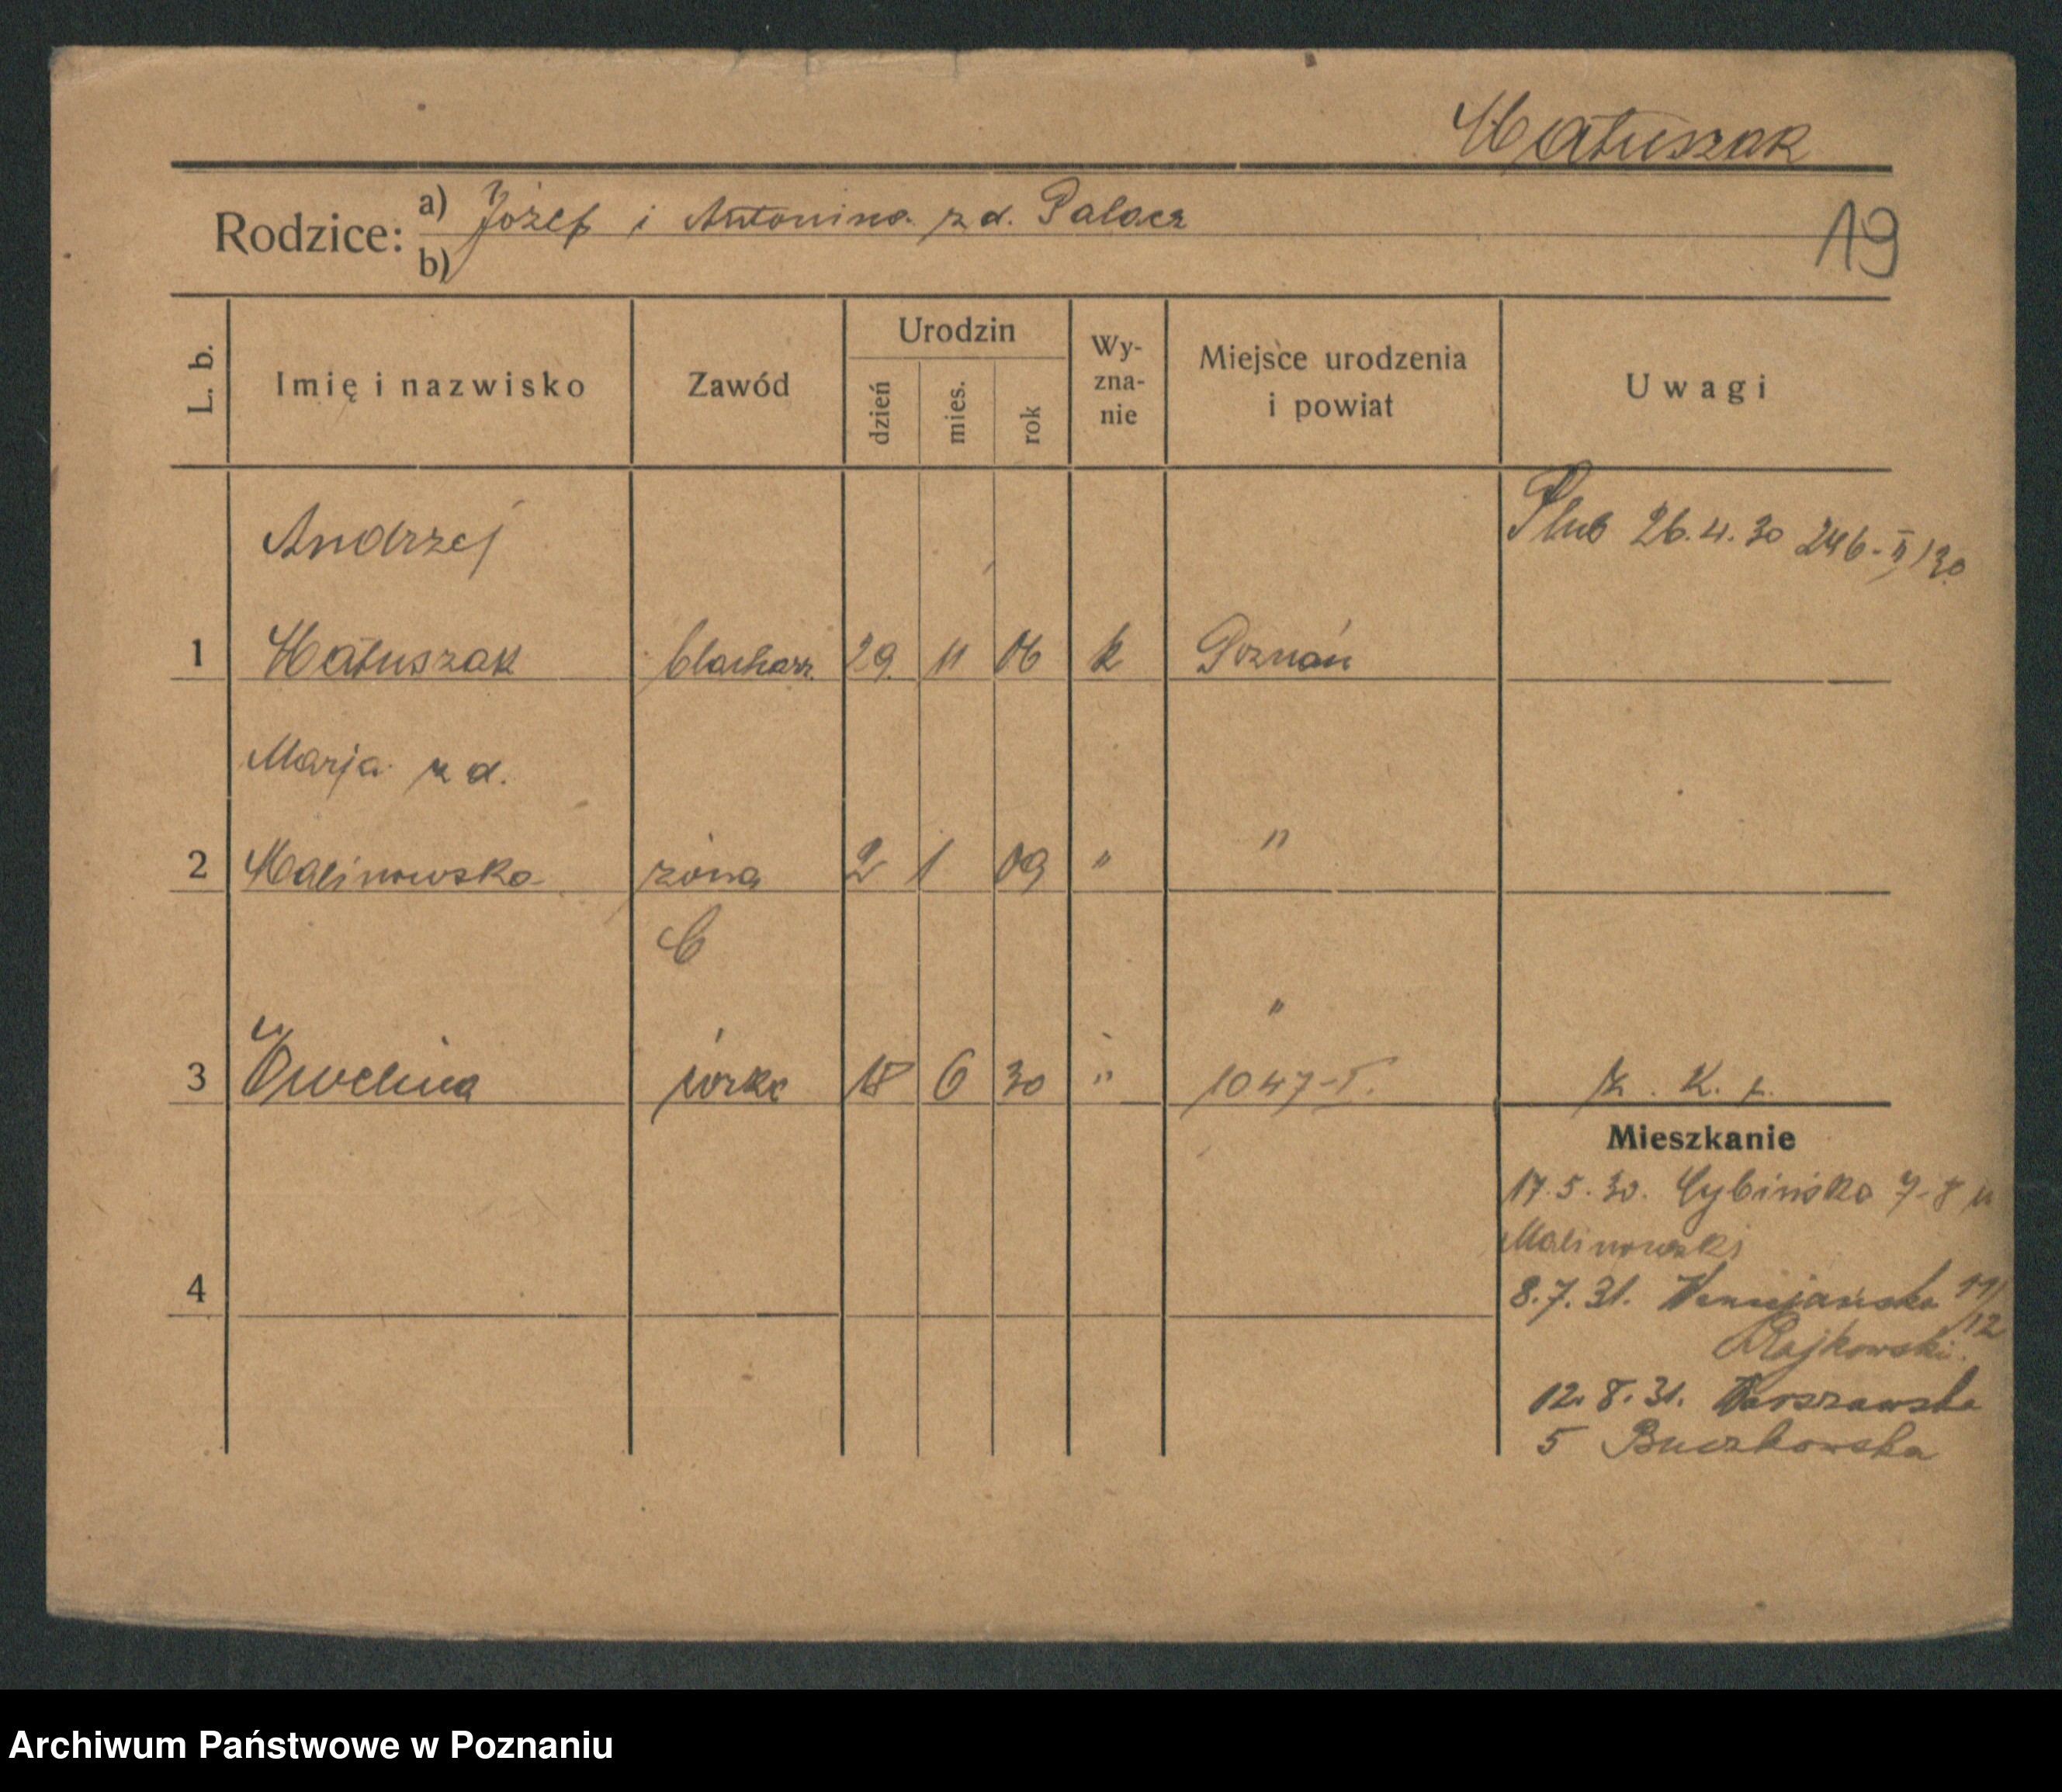 Matuszak
Rodzice: a) Józef i Antonina z d. Palacz
b)
19
L. b. Imię i nazwisko Zawód Urodzin dzień mies. rok Wy-zna-nie Miejsce urodzenia i powiat Uwagi
Andrzej Ślub 26.4.30 246-II/30
1 Matuszak blacharz. 29. 11 06 k Poznań
Marja z d.
2 Malinowska żona 2 1 09 " "
C
"
3 Ewelina córka 18 6 30 " 1047-I. K.
Mieszkanie
17.5.30. Cybińska 7-8 u
Malinowski
8.7.31. 11/12
Rajkowski.
4
12.8.31. Warszawska
5 Buczkowska
Archiwum Państwowe w Poznaniu